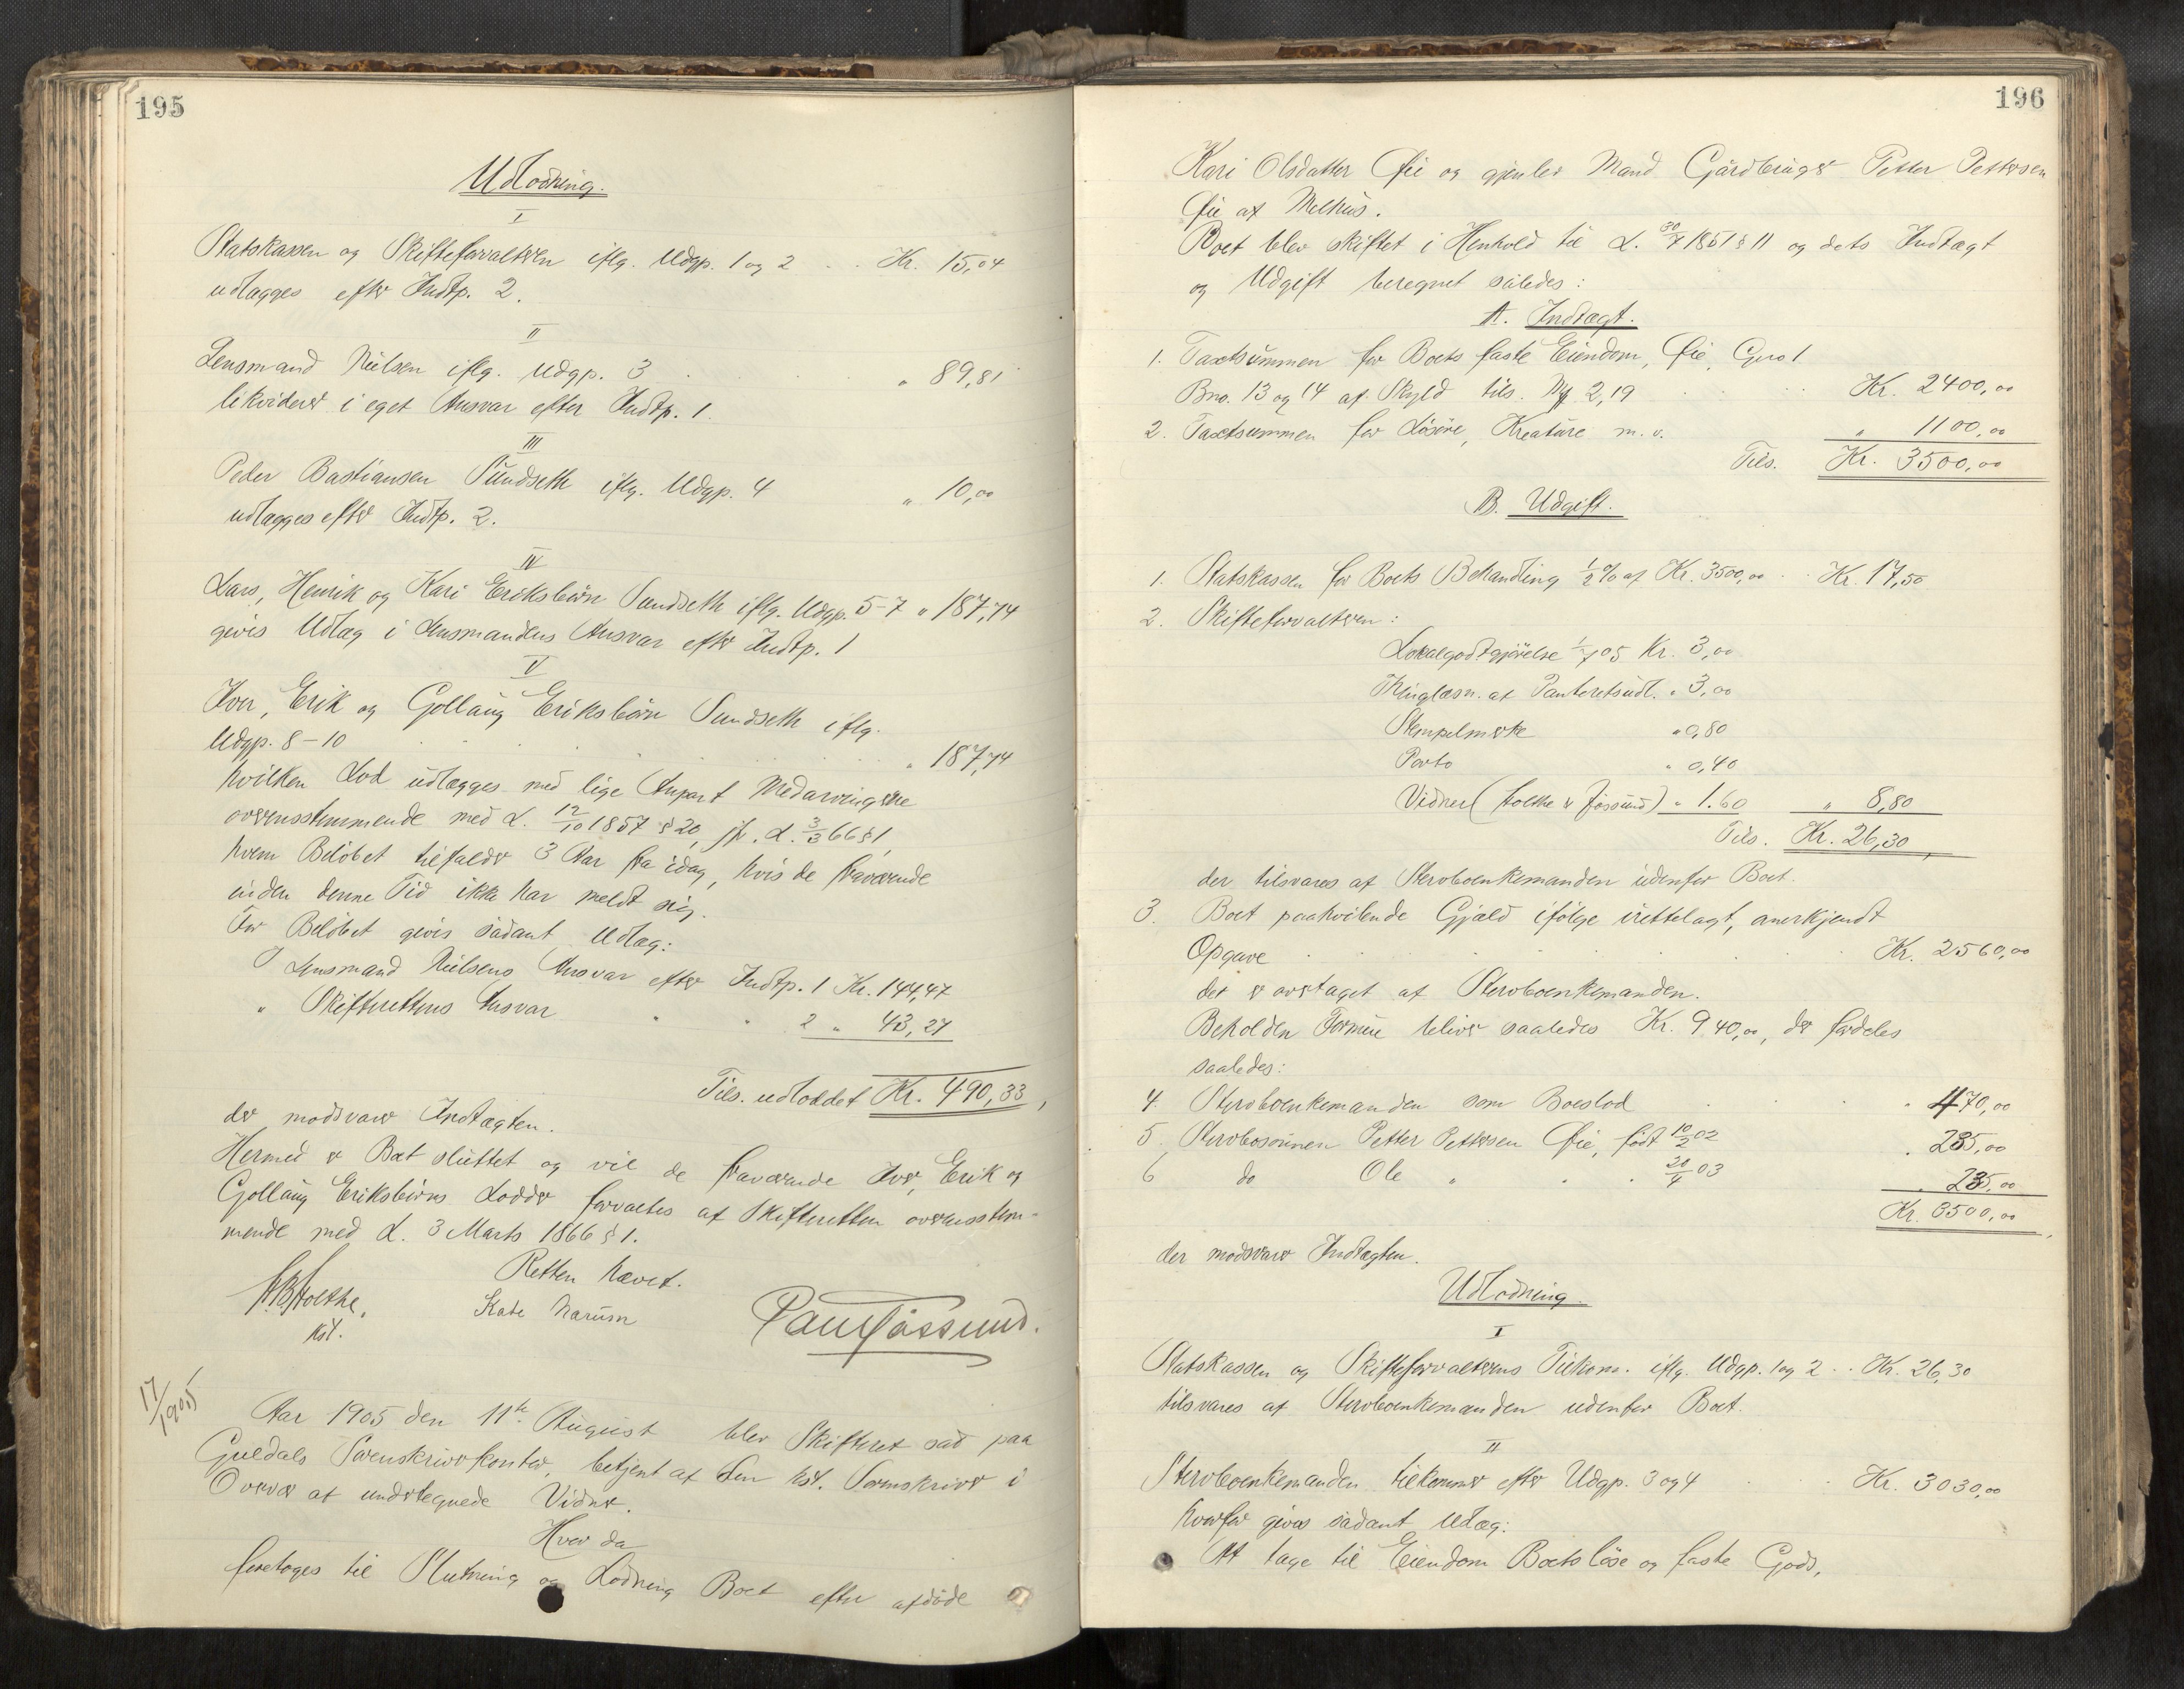 195
Udlodning.
I
Statskassen og Skifteforvalteren iflg. Udgp. 1 og 2 . . Kr. 15,04
udlægges efter Indtp. 2.
II
Lensmand Nielsen iflg. Udgp. 3 . . . „ 89,81
likviderer i eget Ansvar efter Indtp. 1.
III
Peder Bastiansen Sundseth iflg. Udgp. 4 „ 10,00
udlægges efter Indtp. 2.
IV
Lars, Henrik og Kari Eriksbörn Sundseth iflg. Udgp. 5-7 „ 187,74
givis Udlæg i Lensmandens Ansvar efter Indtp. 1
V
Iver, Erik og Gollaug Eriksbörn Sundseth iflg.
Udgp. 8-10 . . . „ 187,74
hvilken Lod udlægges med lige Anpart Medarvingerne
overensstemmende med L. 12/10 1857 § 20, jfr. L. 3/3 66 § 1,
hvem Belöbet tilfalder 3 Aar fra idag, hvis de fraværende
inden denne Tid ikke har meldt sig.
For Belöbet givis sådant Udlæg:
I Lensmand Nielsens Ansvar efter Indtp. 1 Kr. 144,47
„ Skifterettens Ansvar „ „ 2 „ 43,27
Tils. udloddet Kr. 490,33,
der modsvarer Indtægten.
Hermed er Boet sluttet og vil de fraværende Iver, Erik og
Gollaug Eriksbörns Lodder forvaltes af Skifteretten overensstem-
mende med L. 3 Marts 1866 § 1.
Retten hævet.
Holthe,
kst.
Kate Narum
Paul Jössund.
17/1905
Aar 1905 den 11te August blev Skifteret sat paa
Guldals Sorenskriverkontor, betjent af den kst. Sorenskriver i
Overvær af undertegnede Vidner.
Hvor da
foretoges til Slutning og Lodning Boet efter afdöde
196
Kari Olsdatter Öie og gjenlev. Mand Gårdbruger Petter Pettersen
Öie af Melhus.
Boet blev skiftet i Henhold til L. 30/7 1851 § 11 og dets Indtægt
og Udgift beregnet således:
A. Indtægt.
1. Taxtsummen for Boets faste Eiendom, Öie, Gno 1
Bno. 13 og 14 af Skyld tils. Mk 2,19 . . Kr. 2400,00
2. Taxtsummen for Lösöre, Kreature m. v. „ 1100,00
Tils. Kr. 3500,00
B. Udgift.
1. Statskassen for Boets Behandling ½ % af Kr. 3500,00 . . Kr. 17,50
2. Skifteforvalteren:
Lokalgodtgjörelse 1/7 05 Kr. 3,00
Thinglæsn. af Panteretsudl. „ 3,00
Stempelmerke „ 0,80
Porto „ 0,40
Vidner (Holthe & Jössund) „ 1.60 „ 8,80
Tils. Kr. 26,30,
der tilsvares af Sterboenkemanden udenfor Boet.
3. Boet paahvilende Gjæld ifölge irettelagt, anerkjendt
Opgave . . . Kr. 2560,00
der er overtaget af Sterboenkemanden.
Beholden Formue bliver saaledes Kr. 940,00, der fordeles
saaledes:
4. Sterboenkemanden som Boeslod . . „ 470,00
5. Sterbosönnen Petter Pettersen Öie, födt 10/2 02 „ 235,00
6 do Ole „ „ 20/4 03 „ 235,00
Kr. 3500,00,
der modsvarer Indtægten.
Udlodning.
I
Statskassen og Skifteforvalterens Tilkom. iflg. Udgp. 1 og 2 . . Kr. 26,30
tilsvares af Sterboenkemanden udenfor Boet.
II
Sterboenkemanden tilkommer efter Udgp. 3 og 4 . . Kr. 3030,00
hvorfor givis sådant Udlæg:
At tage til Eiendom Boets löse og faste Gods,